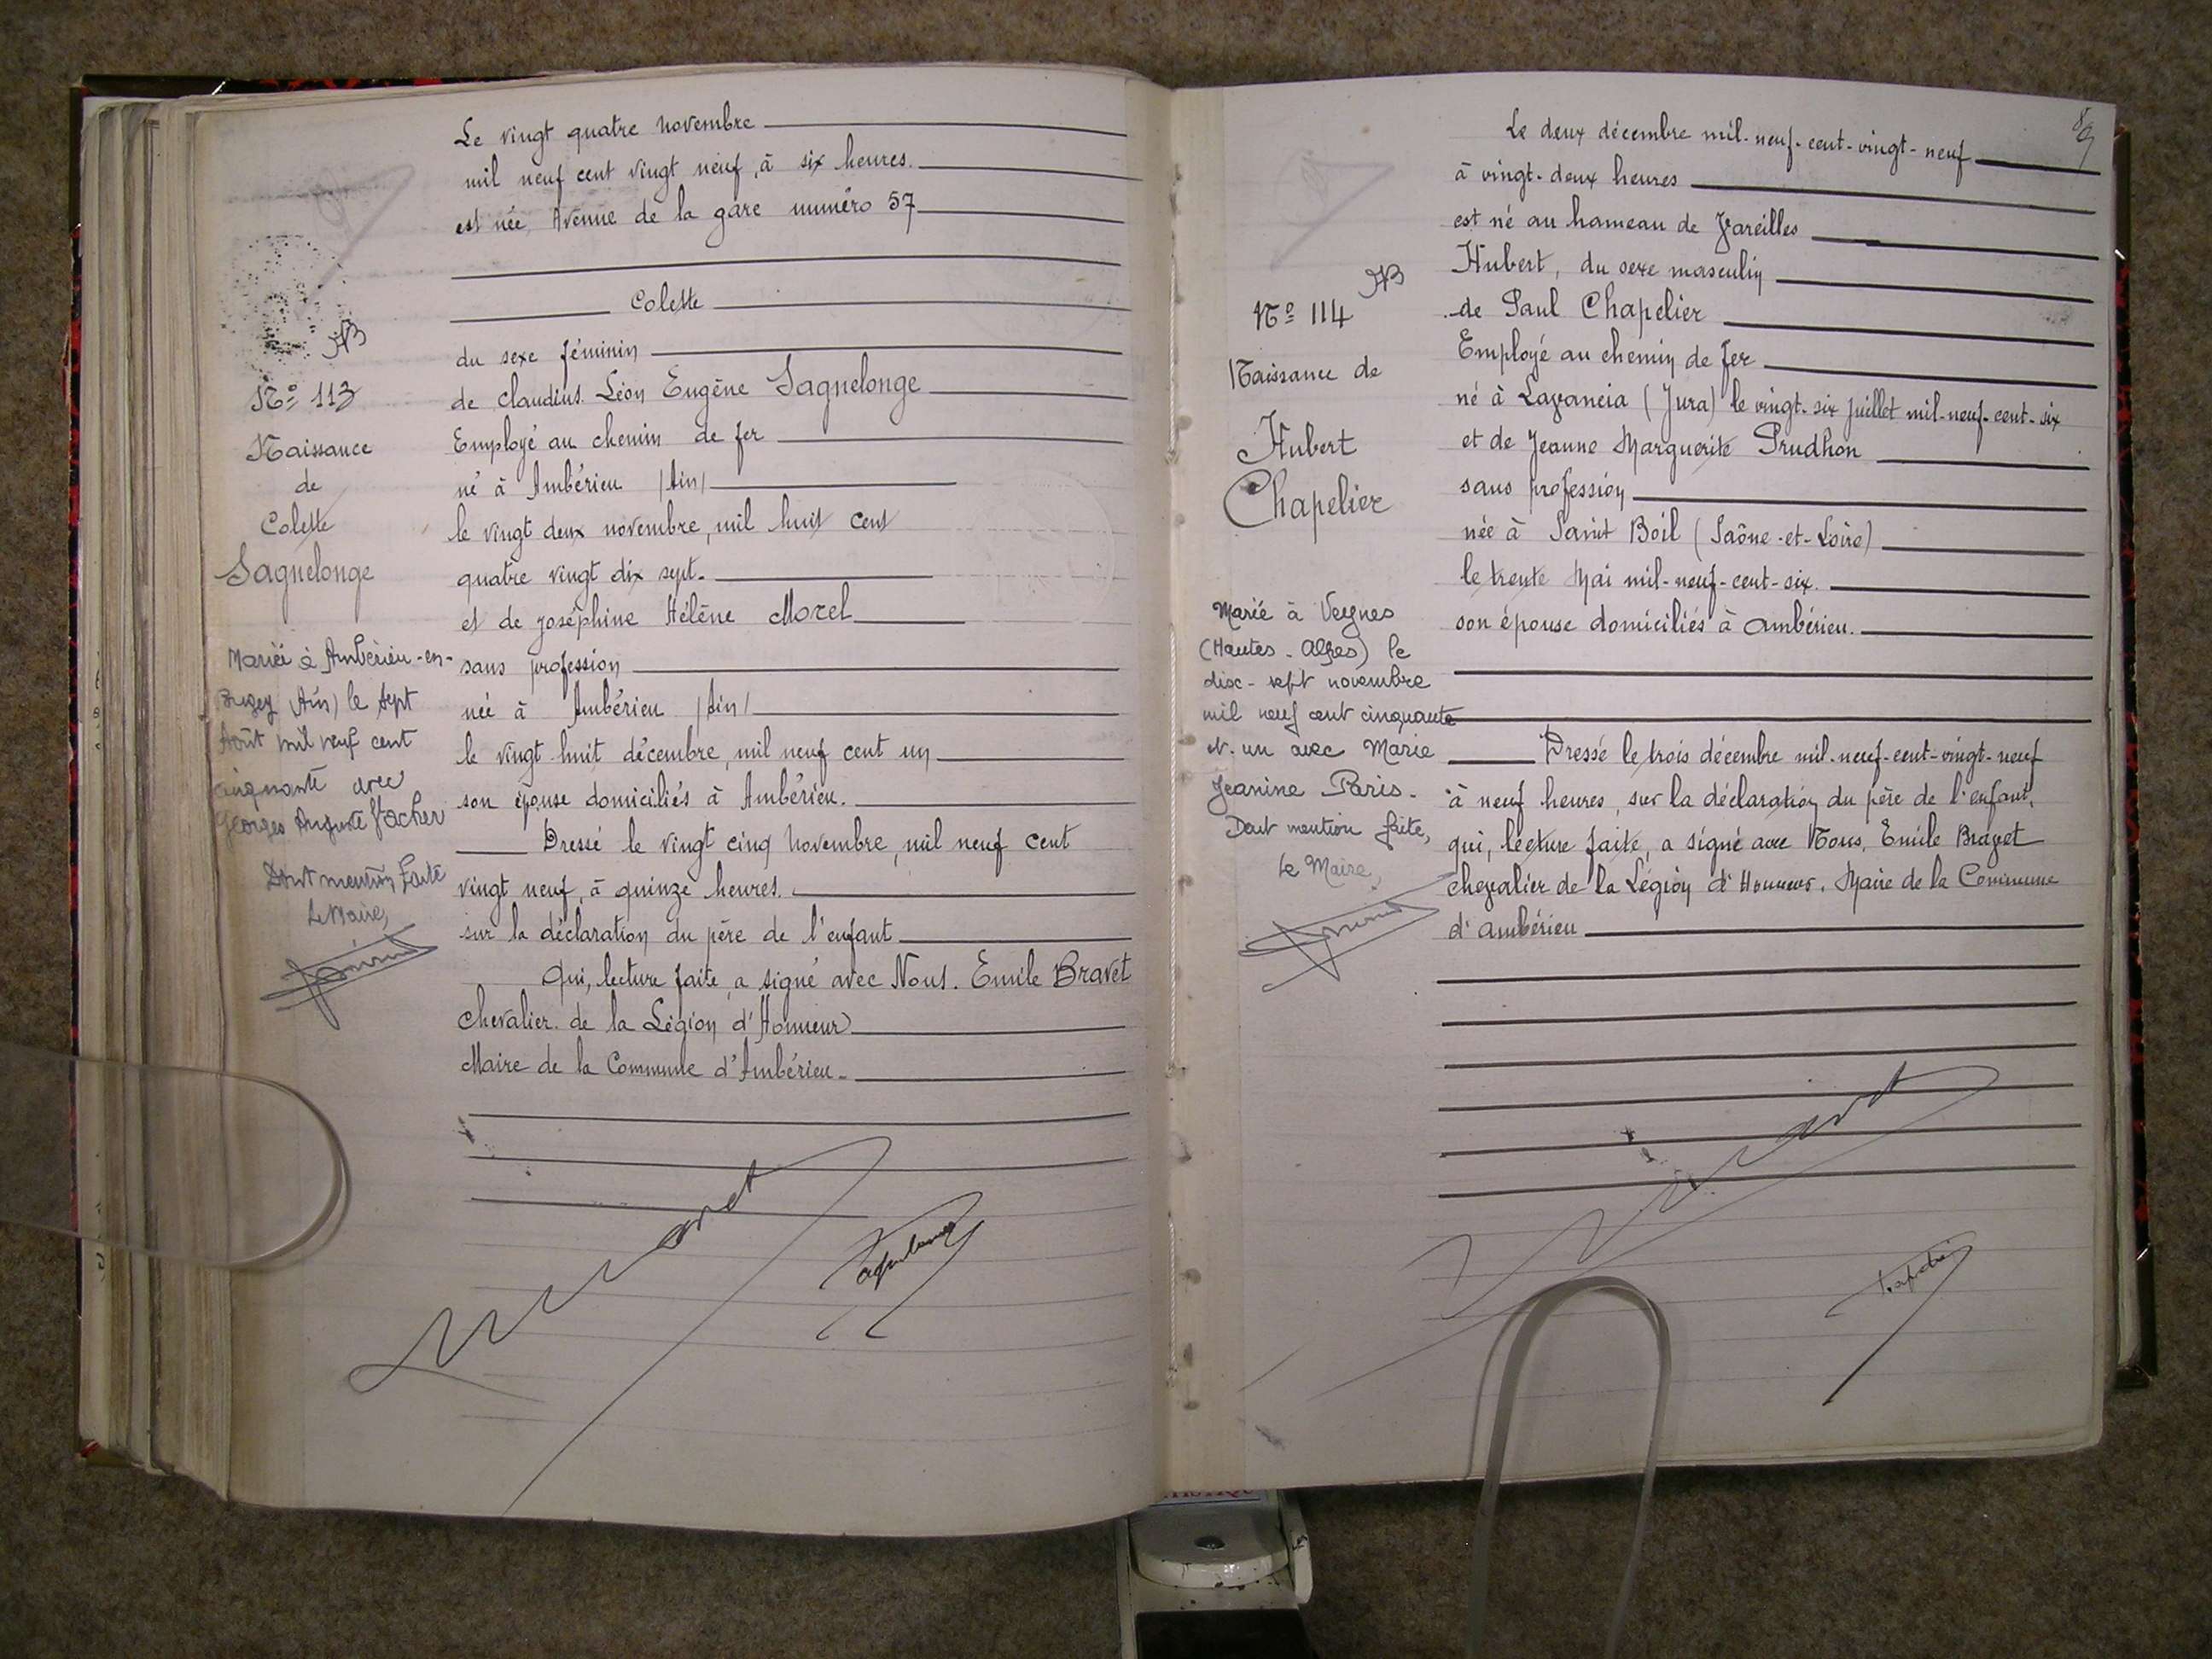 Le vingt quatre novembre
mil neuf cent vingt neuf, à six heures.
est née, Avenue de la gare numéro 57
Colette
du sexe féminin
de Claudius Léon Eugène Sagnelonge
Employé au chemin de fer
né à Ambérieu (Ain)
le vingt deux novembre, mil huit cent
quatre vingt dix sept.
et de Joséphine Hélène Morel
sans profession
née à Ambérieu (Ain)
le vingt huit décembre, mil neuf cent un
son épouse domiciliés à Ambérieu.
Dressé le vingt cinq Novembre, mil neuf cent
vingt neuf, à quinze heures.
sur la déclaration du père de l'enfant
Qui, lecture faite, a signé avec Nous. Emile Bravet
Chevalier de la Légion d'Honneur
Maire de la Commune d'Ambérieu.
No 113
Naissance
de
Colette
Sagnelonge
Mariée à Ambérieu-en-
Bugey (Ain) le sept
Août mil neuf cent
cinquante avec
Georges Auguste Vacher
Dont mention faite
Le Maire,
89
Le deux décembre mil-neuf-cent-vingt-neuf
à vingt-deux heures
est né au hameau de Vareilles
Hubert, du sexe masculin
de Paul Chapelier
Employé au chemin de fer
né à Lavancia (Jura) le vingt-six Juillet mil-neuf-cent-six
et de Jeanne Marguerite Prudhon
sans profession
née à Saint Boil (Saône-et-Loire)
le trente Mai mil-neuf-cent-six.
son épouse domiciliés à Ambérieu.
Dressé le trois décembre mil-neuf-cent-vingt-neuf
à neuf heures, sur la déclaration du père de l'enfant,
qui, lecture faite, a signé avec Nous, Emile Bravet
chevalier de la Légion d'Honneur. Maire de la Commune
d'Ambérieu
No 114
Naissance de
Hubert
Chapelier
Marié à Veynes
(Hautes-Alpes) le
dix-sept novembre
mil neuf cent cinquante
et-un avec Marie
Jeanine Paris.
Dont mention faite,
Le Maire,